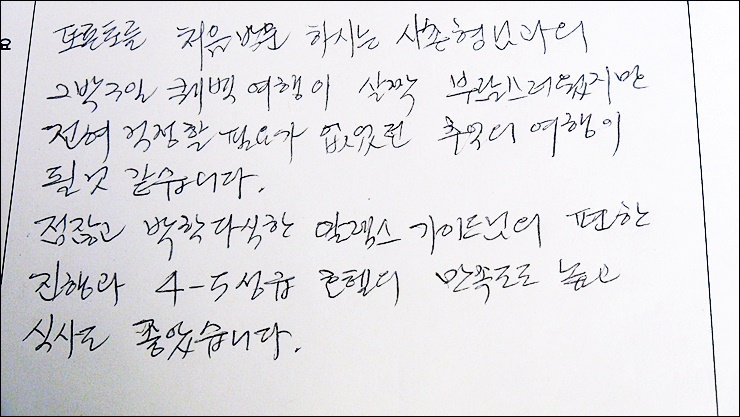 요
토론토를 처음 방문 하시는 사촌형님과의
2박3일 퀘벡 여행이 살짝 부담스러웠지만
전혀 걱정할 필요가 없었던 추억의 여행이
될것 같습니다.
점잖고 박학다식한 알렉스 가이드님의 편한
진행과 4-5성급 호텔의 만족도도 높고
식사도 좋았습니다.